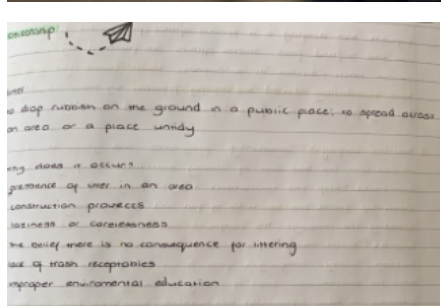 to drop rubbish on the ground in a public place; to spread across
an area or a place untidy
why does it occur?
presence of litter in an area
construction projects
laziness or carelessness
the belief there is no consequence for littering
lack of trash receptables
improper enviromental education